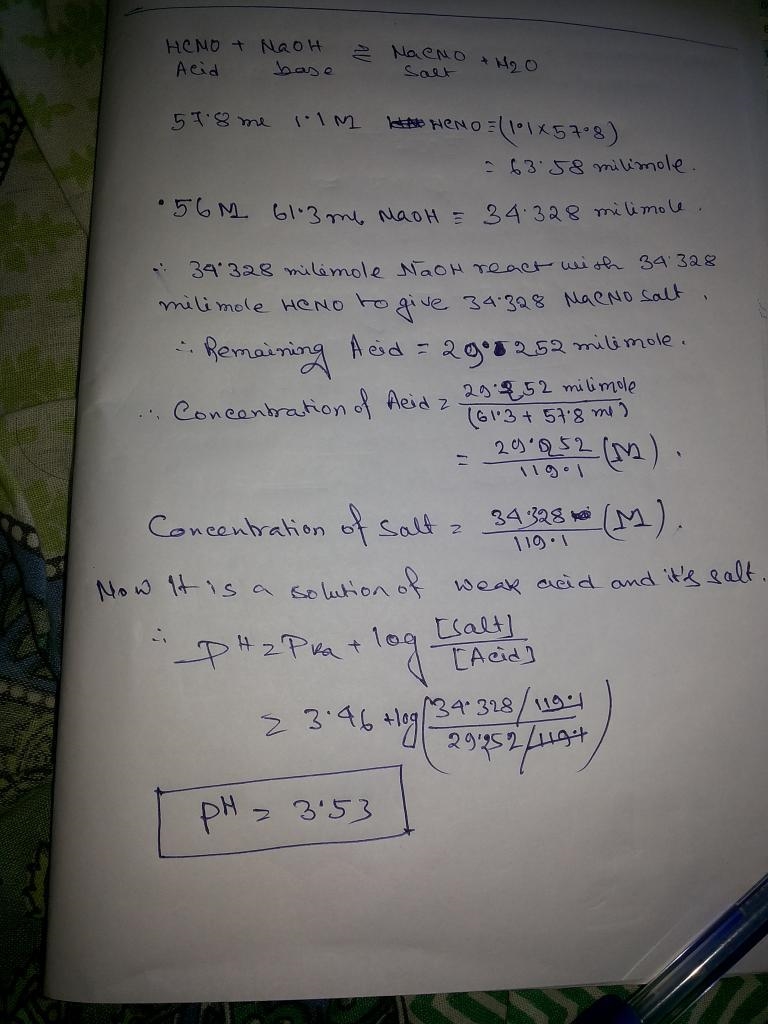 HCNO + NaOH ⇌ NaCNO + H2O
Acid base salt
57.8 ml 1.1 M HCNO = (1.1 x 57.8)
= 63.58 milimole.
.56 M 61.3 ml NaOH = 34.328 milimole.
∴ 34.328 milimole NaOH react with 34.328
milimole HCNO to give 34.328 NaCNO salt.
∴ Remaining Acid = 29.252 milimole.
∴ Concentration of Acid = 29.252 milimole / (61.3 + 57.8 ml)
= 29.252 / 119.1 (M).
Concentration of Salt = 34.328 / 119.1 (M).
Now It is a solution of weak acid and it's salt.
∴ PH = PKa + log [Salt] / [Acid]
= 3.46 + log (34.328/119.1 / 29.252/119.1)
PH = 3.53